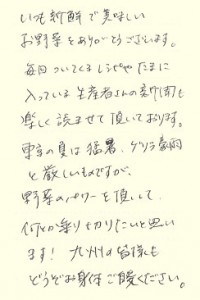 いつも新鮮で美味しい
お野菜をありがとうございます。
毎回ついてくるレシピやたまに
入っている生産者さんの新聞も
楽しく読ませて頂いております。
東京の夏は猛暑、ゲリラ豪雨
と厳しいものですが、
野菜のパワーを頂いて、
何とか乗り切りたいと思い
ます！ 九州の皆様も
どうぞお身体ご自愛ください。